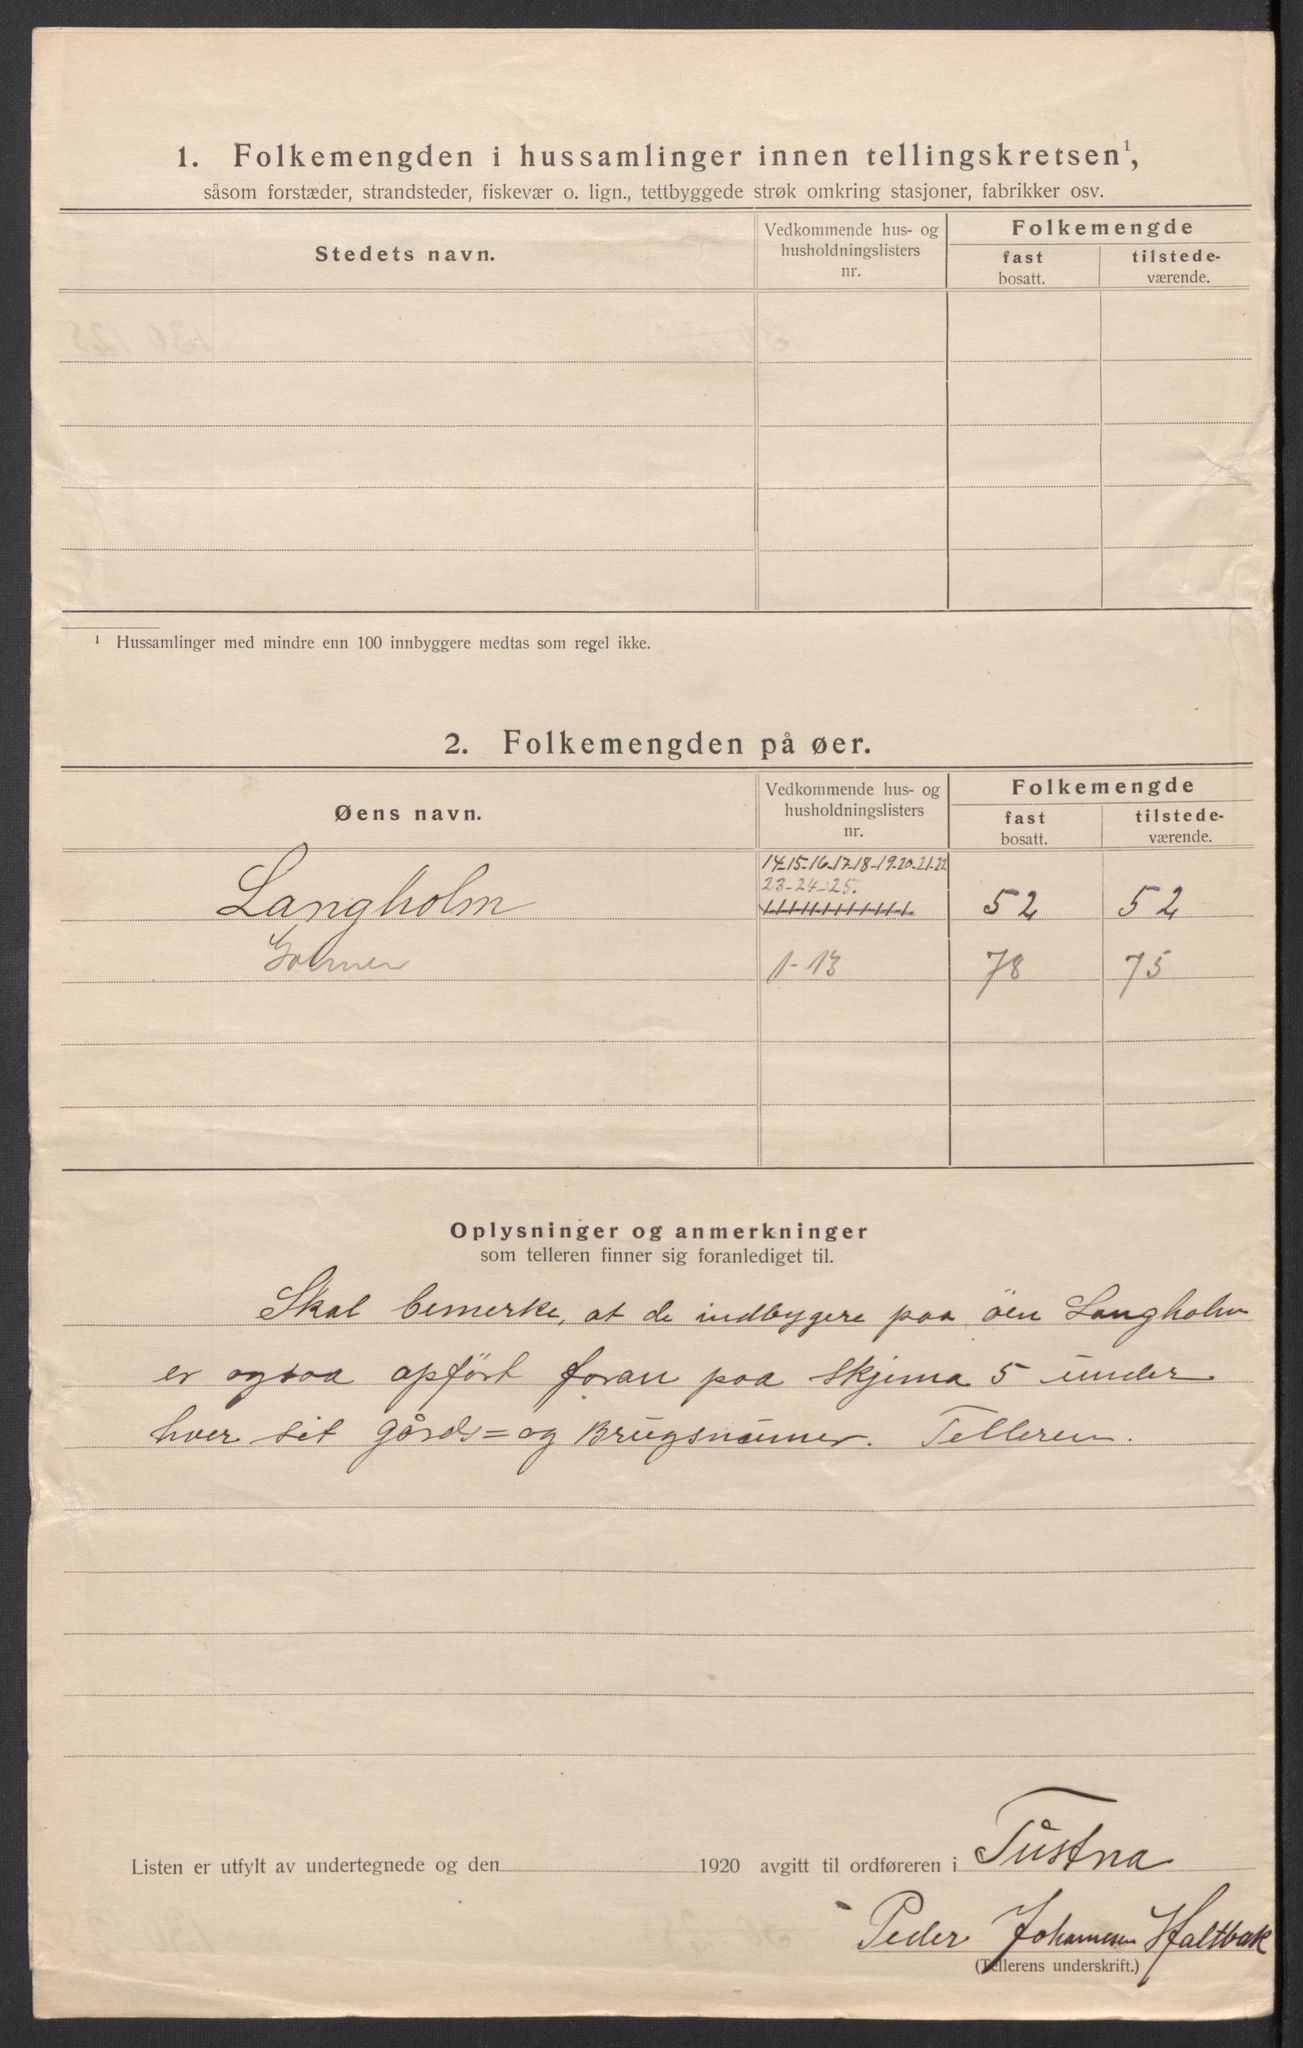 1. Folkemengden i hussamlinger innen tellingskretsen¹,
såsom forstæder, strandsteder, fiskevær o. lign., tettbyggede strøk omkring stasjoner, fabrikker osv.
Stedets navn.
Vedkommende hus- og
husholdningslisters
nr.
Folkemengde
fast
bosatt.
tilstede-
værende.
¹ Hussamlinger med mindre enn 100 innbyggere medtas som regel ikke.
2. Folkemengden på øer.
Øens navn.
Vedkommende hus- og
husholdningslisters
nr.
Folkemengde
fast
bosatt.
tilstede-
værende.
14-15-16-17-18-19-20-21-22
23-24-25.
Langholm 52 52
1-13 78 75
Oplysninger og anmerkninger
som telleren finner sig foranlediget til.
Skal bemerke, at de indbygere paa öen Langholm
er ogsaa opfört foran paa Skjema 5 under
hver sit gårds= og Brugsnumer. Telleren.
Listen er utfylt av undertegnede og den 1920 avgitt til ordføreren i Tustna
Peder Johannesen
(Tellerens underskrift.)